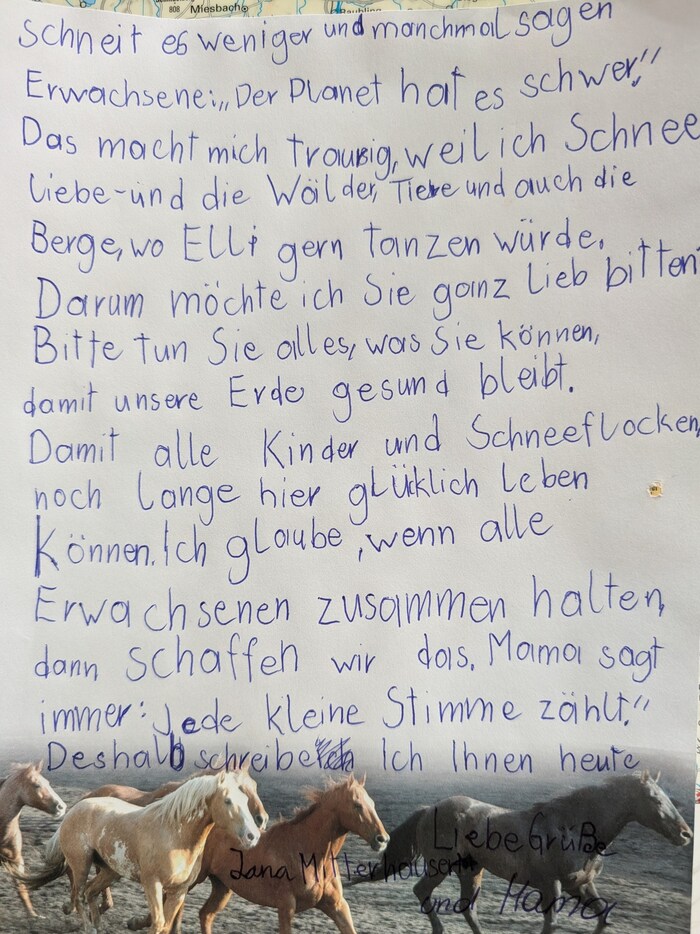 808 Miesbach
schneit es weniger und manchmal sagen
Erwachsene: „Der Planet hat es schwer."
Das macht mich traurig, weil ich Schnee
liebe - und die Wälder, Tiere und auch die
Berge, wo Elli gern tanzen würde.
Darum möchte ich Sie ganz lieb bitten
Bitte tun Sie alles, was Sie können,
damit unsere Erde gesund bleibt.
Damit alle Kinder und Schneeflocken
noch lange hier glücklich leben
können. Ich glaube, wenn alle
Erwachsenen zusammen halten,
dann schaffen wir das. Mama sagt
immer: Jede kleine Stimme zählt."
Deshalb schreibe Ich Ihnen heute
Liebe Grüße
Jana Mitterhauser
und Mama